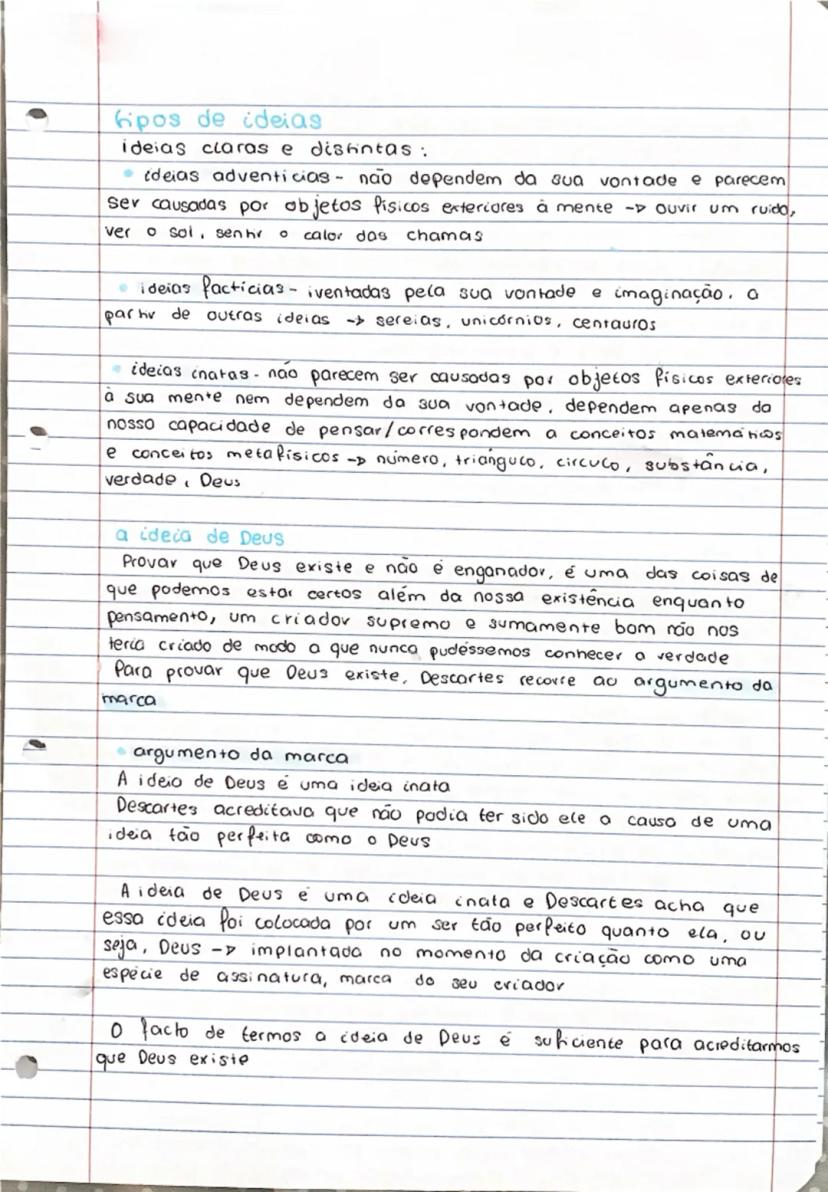 tipos de ideias
ideias claras e distintas:
• ideias adventícias - não dependem da sua vontade e parecem
ser causadas por objetos físicos exteriores à mente -> ouvir um ruído,
ver o sol, sentir o calor das chamas
• ideias factícias - iventadas pela sua vontade e imaginação, a
partir de outras ideias -> sereias, unicórnios, centauros
• ideias inatas - não parecem ser causadas por objetos físicos exteriores
à sua mente nem dependem da sua vontade, dependem apenas da
nosso capacidade de pensar/correspondem a conceitos matemáticos
e conceitos metafísicos -> número, triângulo, círculo, substância,
verdade, Deus
a ideia de Deus
Provar que Deus existe e não é enganador, é uma das coisas de
que podemos estar certos além da nossa existência enquanto
pensamento, um criador supremo e sumamente bom não nos
teria criado de modo a que nunca pudéssemos conhecer a verdade
Para provar que Deus existe, Descartes recorre ao argumento da
marca
• argumento da marca
A ideia de Deus é uma ideia inata
Descartes acreditava que não podia ter sido ele a causa de uma
ideia tão perfeita como o Deus
A ideia de Deus é uma ideia inata e Descartes acha que
essa ideia foi colocada por um ser tão perfeito quanto ela, ou
seja, Deus -> implantada no momento da criação como uma
espécie de assinatura, marca do seu criador
O facto de termos a ideia de Deus é suficiente para acreditarmos
que Deus existe